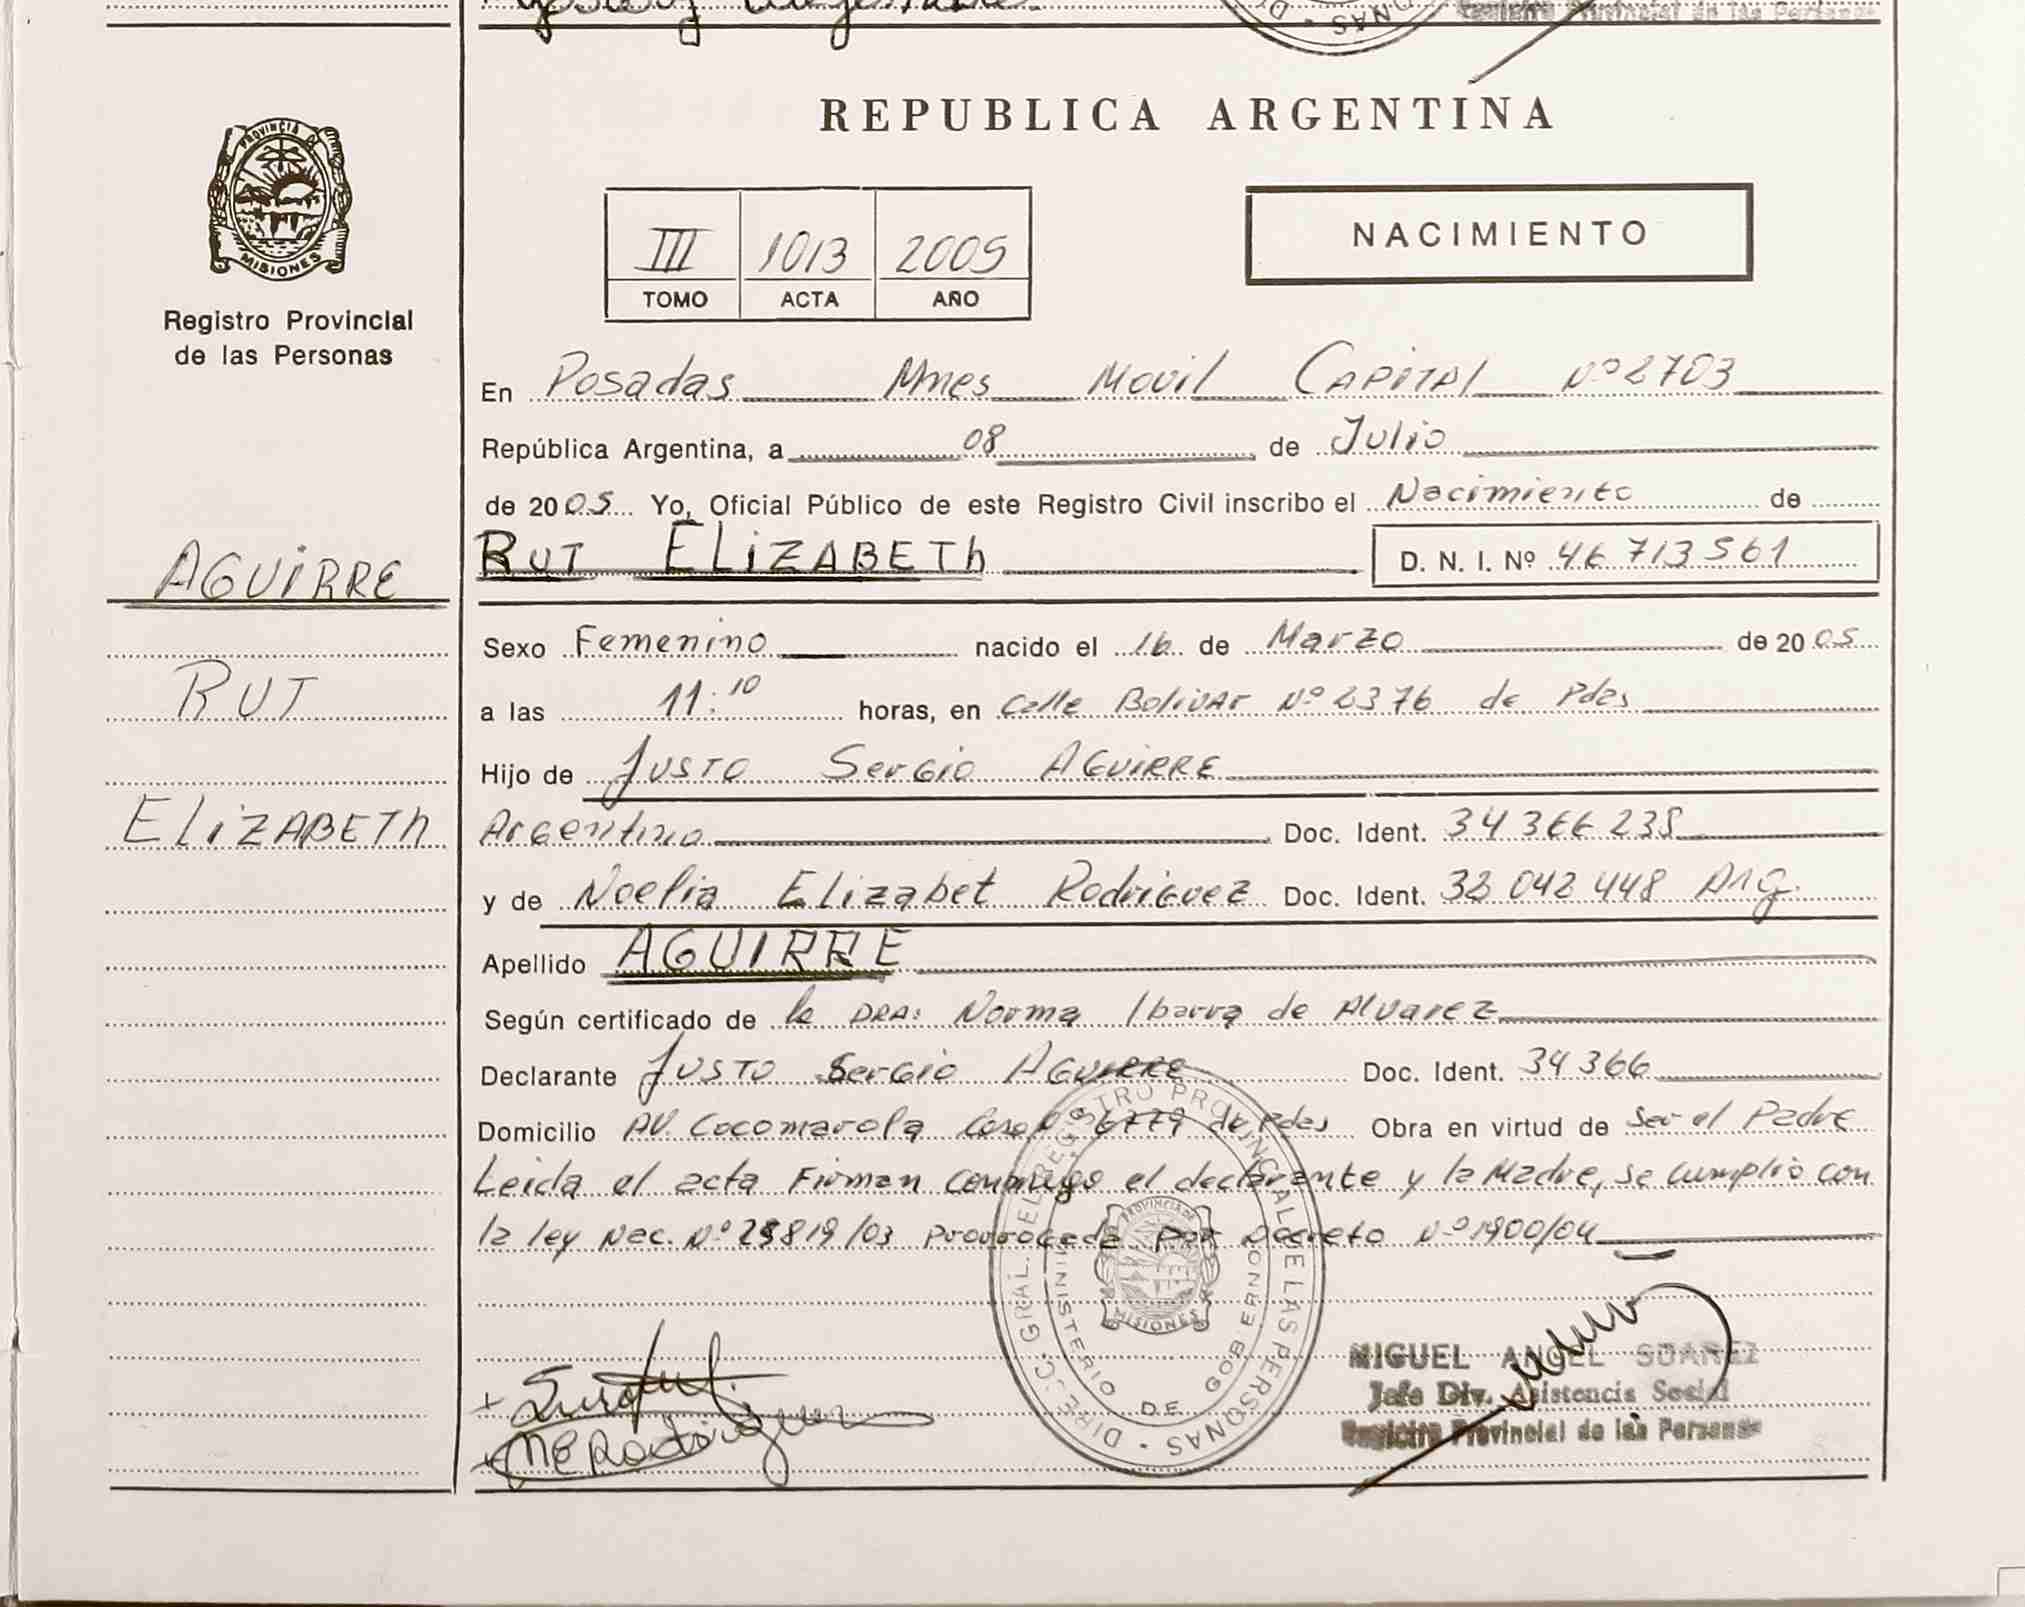 REPUBLICA ARGENTINA
PROVINCIA DE
MISIONES
Registro Provincial
de las Personas
III 1013 2005
TOMO ACTA AÑO
NACIMIENTO
En Posadas Mnes Movil Capital Nº 2703
República Argentina, a 08 de Julio
de 2005 Yo, Oficial Público de este Registro Civil inscribo el Nacimiento de
RUT ELIZABETh D. N. I. Nº 46 713 561
AGUIRRE
RUT
ELIZABETh
Sexo Femenino nacido el 16 de Marzo de 2005
a las 11:10 horas, en Calle Bolivar Nº 2376 de Pdas
Hijo de Justo Sergio AGUIRRE
Argentino Doc. Ident. 34 366 238
y de Noelia Elizabet Rodriguez Doc. Ident. 33 042 448 Arg.
Apellido AGUIRRE
Según certificado de la DRA: Norma Ibarra de Alvarez
Declarante Justo Sergio AGUIRRE Doc. Ident. 34 366
Domicilio AV. Cocomarola Casa 6779 de Pdas Obra en virtud de Ser el Padre
Leida el acta Firman conmigo el declarante y la Madre, se cumplio con
la ley Nac. Nº 25819/03 Prorrogada por Decreto Nº 1900/04
DIREC. GRAL. EL REGISTRO PROVINCIAL DE LAS PERSONAS
MINISTERIO DE GOBIERNO
PROVINCIA DE
MISIONES
ME Rodriguez
MIGUEL ANGEL SUAREZ
Jefe Div. Asistencia Social
Registro Provincial de las Personas